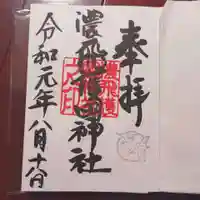 奉拝
濃飛護国神社
令和元年八月十六日